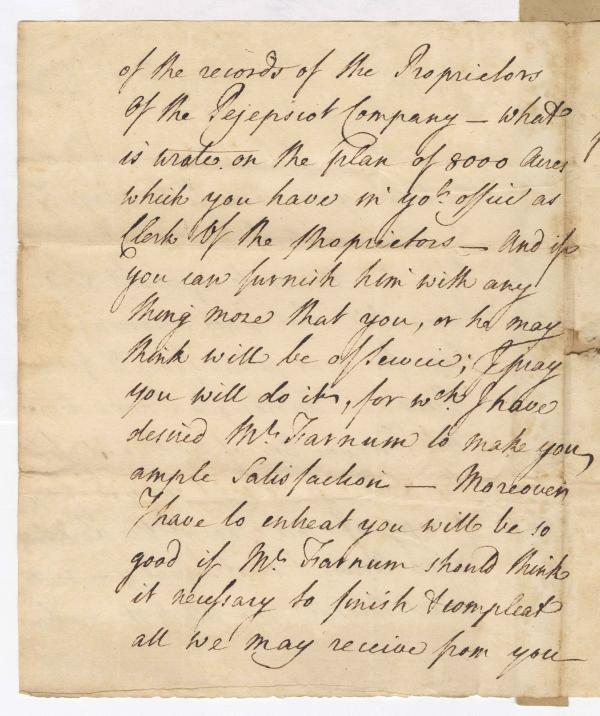 of the records of the Proprietors
Of the Pejepscot Company – what
is wrote on the plan of 8000 Acres
which you have in yor. office as
Clerk Of the Proprietors – And if
you can furnish him with any
thing more that you, or he may
think will be of Service; I pray
you will do it, for wch. I have
desired Mr. Farnum to make you,
ample Satisfaction – Moreover
I have to entreat you will be so
good if Mr. Farnum should think
it necessary to finish & compleat
all we may receive from you –